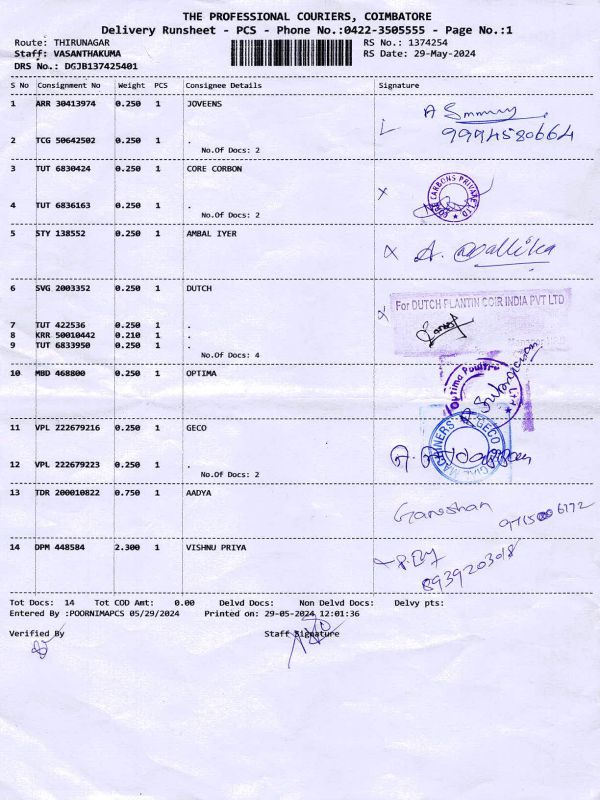 THE PROFESSIONAL COURIERS, COIMBATORE
Delivery Runsheet - PCS - Phone No.:0422-3505555 - Page No.:1
Route: THIRUNAGAR RS No.: 1374254
Staff: VASANTHAKUMA RS Date: 29-May-2024
DRS No.: DGJB137425401
S No Consignment No Weight PCS Consignee Details Signature
1 ARR 30413974 0.250 1 JOVEENS
9994580664
2 TCG 50642502 0.250 1 .
No.Of Docs: 2
3 TUT 6830424 0.250 1 CORE CORBON
CORE CARBONS PRIVATE LTD
4 TUT 6836163 0.250 1 .
No.Of Docs: 2
5 STY 138552 0.250 1 AMBAL IYER
6 SVG 2003352 0.250 1 DUTCH
For DUTCH PLANTIN COIR INDIA PVT LTD
7 TUT 422536 0.250 1 .
8 KRR 50010442 0.210 1 .
9 TUT 6833950 0.250 1 .
No.Of Docs: 4
10 MBD 468800 0.250 1 OPTIMA
Optima Poultry
11 VPL 222679216 0.250 1 GECO
GECO
MACHINERS
12 VPL 222679223 0.250 1 .
No.Of Docs: 2
13 TDR 200010822 0.750 1 AADYA
Ganeshan
14 DPM 448584 2.300 1 VISHNU PRIYA
8939203018
Tot Docs: 14 Tot COD Amt: 0.00 Delvd Docs: Non Delvd Docs: Delvy pts:
Entered By :POORNIMAPCS 05/29/2024 Printed on: 29-05-2024 12:01:36
Verified By Staff Signature